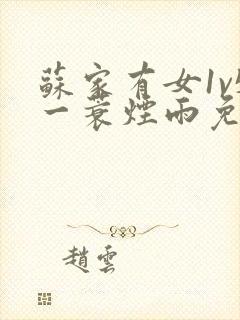 蘇家有女1v
一蓑煙雨免
趙雲